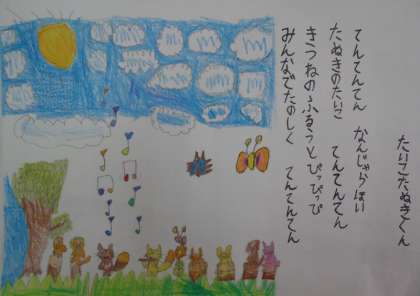 たいこたぬきくん
てんてんてん なんじゃらほい
たぬきのたいこ てんてんてん
きつねのふるうとぴっぴっぴ
みんなでたのしく てんてんてん